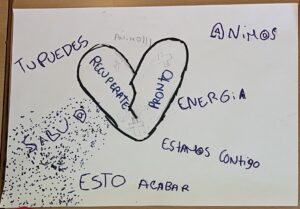 ANiMOS
ANiMO!!!
TU PUEDES
RECUPERATE
PRONTO
ENERGiA
SALUD
ESTAMOS CONTiGO
ESTO ACABAR